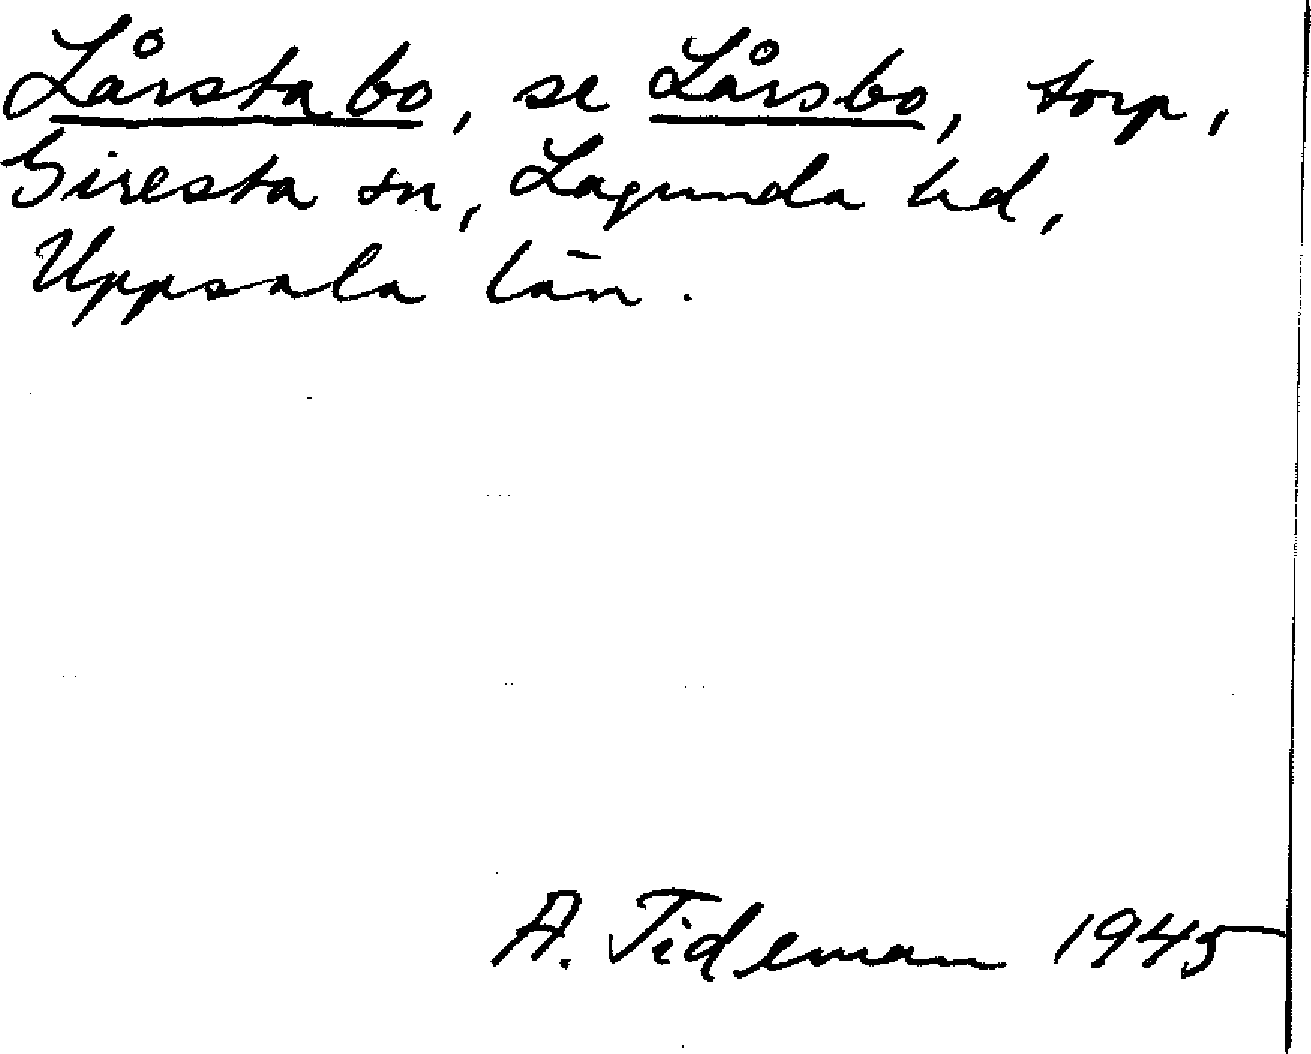 Lårstabo, se Lårsbo, torp,
Giresta sn, Lagunda hd,
Uppsala län.
A. Tideman 1945